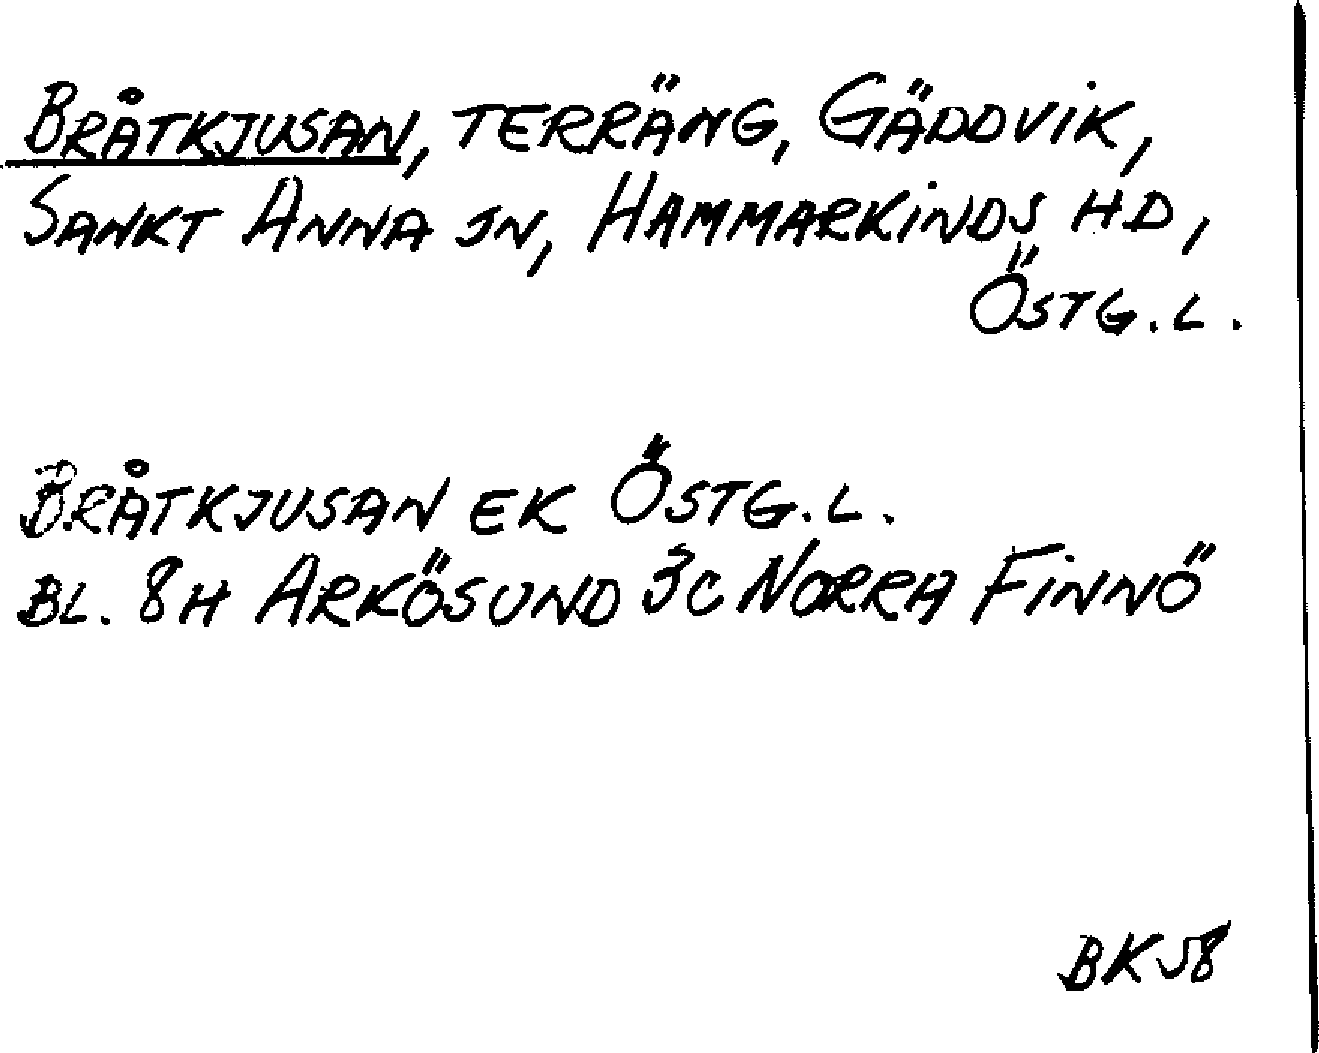 BRÅTKJUSAN, TERRÄNG, GÄDDVIK,
SANKT ANNA SN, HAMMARKINDS HD,
ÖSTG.L.
BRÅTKJUSAN EK ÖSTG.L.
BL. 8H ARKÖSUND 3C NORRA FINNÖ
BK 58